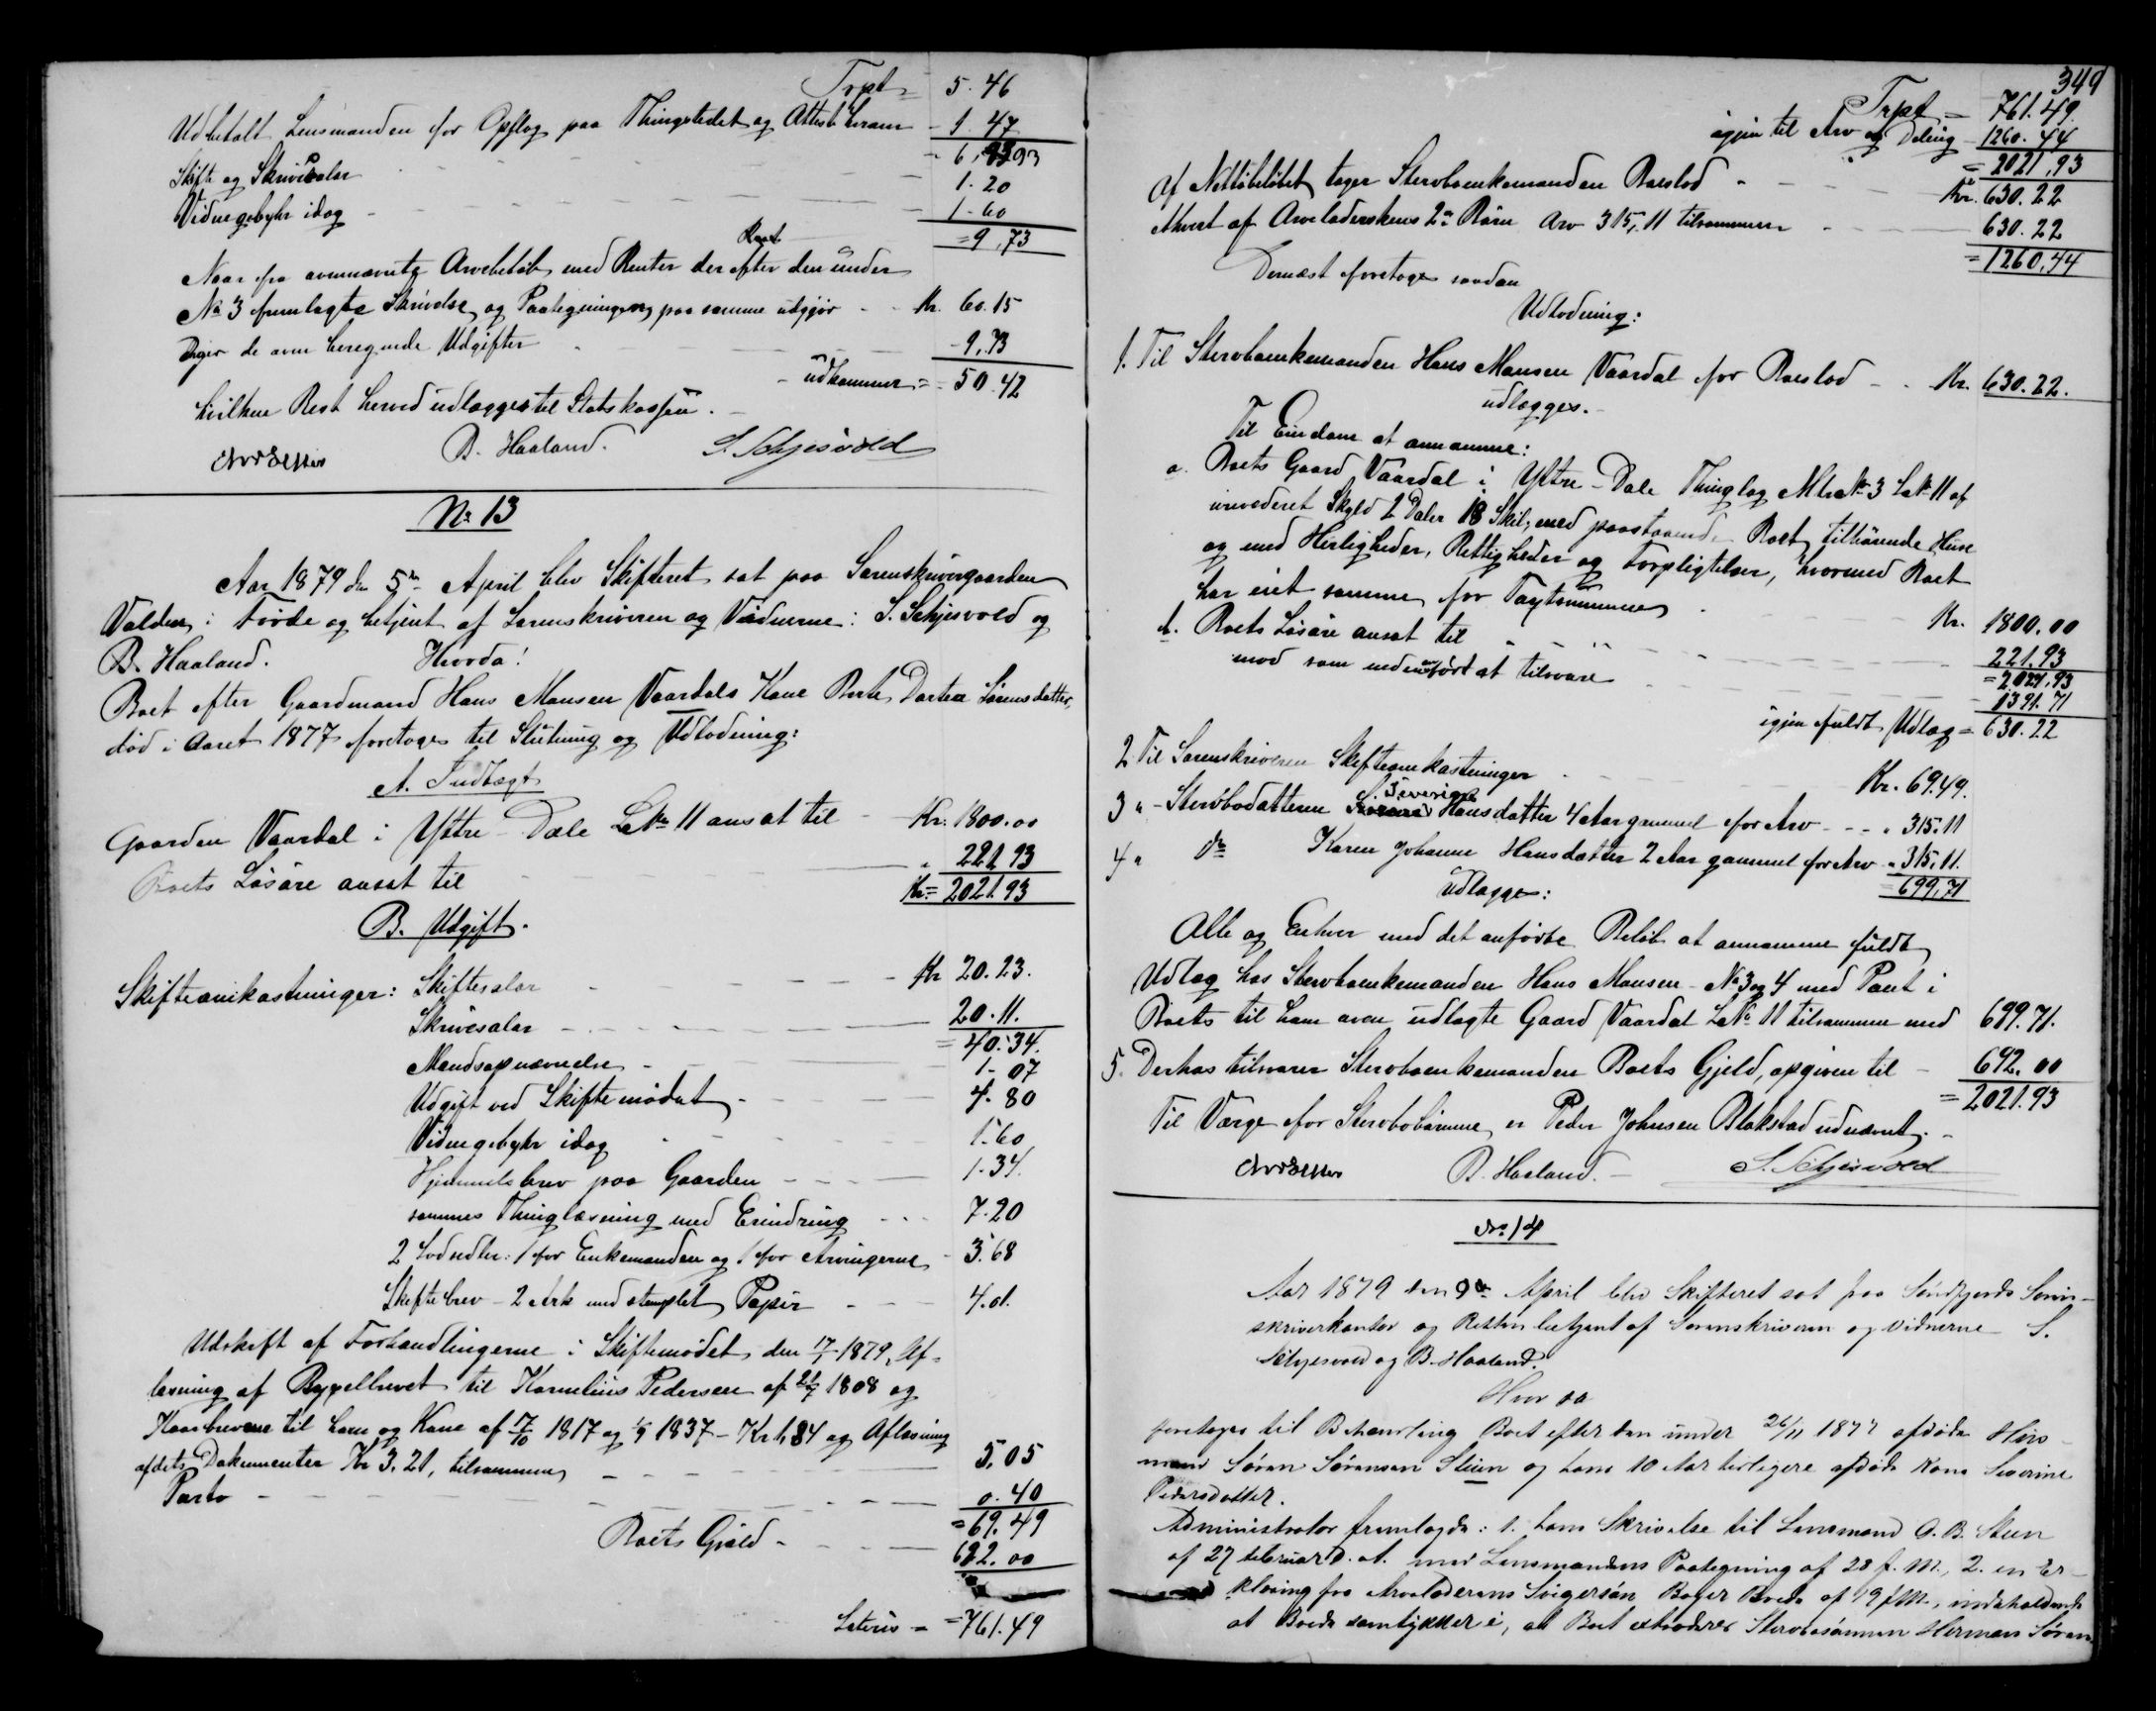 Trpt = 5.46
Udbetalt Lensmanden for Opslag paa Thingstedet og Attest herom - 1.47
= 6,93
Skifte og Skrivesalær - 1.20
Vidnegebyhr idag - 1.60
= 9,73
Naar fra ovennævnte Arvebeløb med Renter der efter den under
No 3 fremlagte Skrivelse og Paategningen paa samme udgjør - - Kr. 60.15
drages de oven beregnede Udgifter - 9,73
- udkommer = 50.42
hvilken Rest herved udlægges til Statskassen.
B. Haaland. S. Schjesvold
No 13
Aar 1879 den 5te April blev Skifteret sat paa Sorenskrivergaarden
Volden i Førde og betjent af Sorenskriveren og Vidnerne: S. Schjesvold og
B. Haaland. Hvorda!
Boet efter Gaardmand Hans Monsen Vaardals Kone Berte Dortea Sørensdatter,
død i Aaret 1877 foretages til Slutning og Udlodning:
A. Indtægt
Gaarden Vaardal i Yttre-Dale LNo 11 ansat til - Kr. 1800.00
Boets Løsøre ansat til " 221.93
Kr = 2021.93
B. Udgift.
Skifteomkostninger: Skiftesalær - Kr 20.23.
Skrivesalær - 20.11.
= 40.34.
Mandsopnævnelse - 1.07
Udgift ved Skiftemødet - 4.80
Vidnegebyhr idag 1.60
Hjemmelsbrev paa Gaarden - 1.34.
sammes Thinglæsning med Erindring - 7.20
2 Lodsedler: 1 for Enkemanden og 1 for Arvingerne - 3.68
Skiftebrev - 2 Ark med stemplet Papir - 4.01.
Udskrift af Forhandlingerne i Skiftemødet den 17/1 1879, Af-
læsning af Bygselbrevet til Kornelius Pedersen af 22/7 1808 og
Kaarbrevene til ham og Kone af 7/10 1817 og 1/9 1837 - Kr 1,84 og Aflæsning
af dets Dokumenter Kr 3.21, tilsammen - 5,05
Porto - 0.40
= 69.49
Boets Gjæld - 692.00
Lateris = = 761.49
349
Trpt = 761.49
igjen til Arv og Deling - 1260.44
= 2021,93
Af Nettobeløbet tager Sterboenkemanden Boeslod - Kr. 630.22
Ahvert af Arveladerskens 2de Børn Arv 315,11 tilsammen - 630.22
= 1260,44
Dernæst foretoges saadan
Udlodning:
1. Til Sterboenkemanden Hans Monsen Vaardal for Boeslod - Kr. 630.22.
udlægges.
Til Eiendom at annamme:
a. Boets Gaard Vaardal i Yttre-Dale Thinglag MtrNo 3 LNo 11 af
urevideret Skyld 2 Daler 18 Skil, med paastaaende, Boet tilhørende Huse
og med Herligheder, Rettigheder og Forpligtelser, hvormed Boet
har eiet samme for Taxtsummen Kr. 1800.00
b. Boets Løsøre ansat til 221.93
= 2021,93
mod som nedenanført at tilsvare 1391.71
igjen fuldt Udlæg = 630.22
2 Til Sorenskriveren Skifteomkostninger Kr. 69.49.
3 " - Sterbodatteren Severine Hansdatter 4 Aar gammel for Arv - - - " 315.11
4 " do Karen Johanne Hansdatter 2 Aar gammel for Arv " 315,11.
= 699,71
udlægges:
Alle og Enhver med det anførte Beløb at annamme fuldt
Udlæg hos Sterboenkemanden Hans Monsen - No 3 og 4 med Pant i
Boets til ham oven udlagte Gaard Vaardal LNo 11 tilsammen med 699.71.
5. Derhos tilsvarer Sterboenkemanden Boets Gjeld, opgiven til - 692.00
= 2021.93
Til Værge for Sterbobørnene er Peder Johnsen Blakstad udnævnt. -
B. Haaland. - S. Schjesvold
No 14
Aar 1879 den 9de April blev Skifteret sat paa Søndfjords Soren-
skriverkontor og Retten betjent af Sorenskriveren og Vidnerne S.
Schjesvold og B. Haaland.
Hvor da
foretages til Behandling Boet efter den under 26/11 1877 afdøde Huus-
mand Søren Sørensen Steien og hans 10 Aar tidligere afdøde Kone Severine
Pedersdatter.
Administrator fremlagde: 1. hans Skrivelse til Lensmand O. B. Steen
af 27 februar d. A. med Lensmandens Paategning af 28 f. M., 2. en Er-
klæring fra Arveladerens Svigersøn Boger Boeda af 19 f M., indeholdende
at Boeda samtykker i, at Boet extraderes Sterbosønnen Herman Søren-